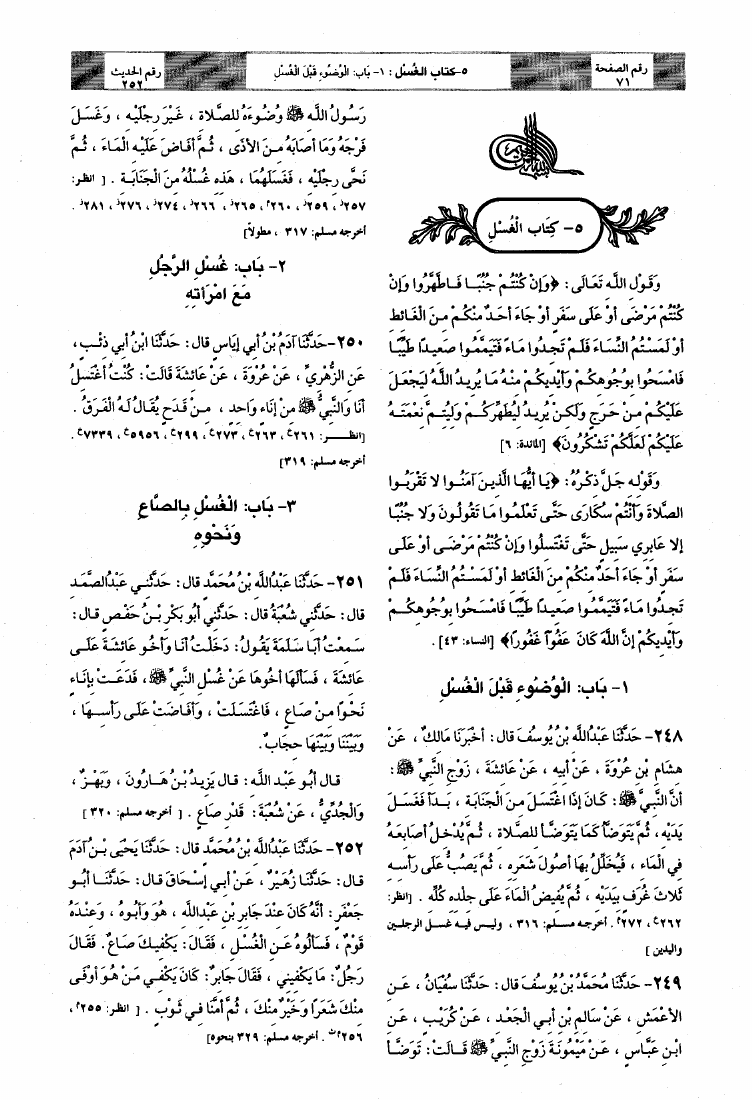 رقم الصفحة
٧١
٥-كتاب الغُسْل : ١- بَاب: الْوُضُوءِ قَبْلَ الْغُسْلِ
رقم الحديث
٢٥٢
٥- كِتَاب الْغُسْلِ
وَقَوْلِ اللَّهِ تَعَالَى: ﴿وَإِنْ كُنْتُمْ جُنُبًا فَاطَّهَّرُوا وَإِنْ
كُنْتُمْ مَرْضَى أَوْ عَلَى سَفَرٍ أَوْ جَاءَ أَحَدٌ مِنْكُمْ مِنَ الْغَائِطِ
أَوْ لَمَسْتُمُ النِّسَاءَ فَلَمْ تَجِدُوا مَاءً فَتَيَمَّمُوا صَعِيدًا طَيِّبًا
فَامْسَحُوا بِوُجُوهِكُمْ وَأَيْدِيكُمْ مِنْهُ مَا يُرِيدُ اللَّهُ لِيَجْعَلَ
عَلَيْكُمْ مِنْ حَرَجٍ وَلَكِنْ يُرِيدُ لِيُطَهِّرَكُمْ وَلِيُتِمَّ نِعْمَتَهُ
عَلَيْكُمْ لَعَلَّكُمْ تَشْكُرُونَ﴾ [المائدة: ٦]
وَقَوْلِهِ جَلَّ ذِكْرُهُ: ﴿يَا أَيُّهَا الَّذِينَ آمَنُوا لا تَقْرَبُوا
الصَّلاةَ وَأَنْتُمْ سُكَارَى حَتَّى تَعْلَمُوا مَا تَقُولُونَ وَلا جُنُبًا
إِلا عَابِرِي سَبِيلٍ حَتَّى تَغْتَسِلُوا وَإِنْ كُنْتُمْ مَرْضَى أَوْ عَلَى
سَفَرٍ أَوْ جَاءَ أَحَدٌ مِنْكُمْ مِنَ الْغَائِطِ أَوْ لَمَسْتُمُ النِّسَاءَ فَلَمْ
تَجِدُوا مَاءً فَتَيَمَّمُوا صَعِيدًا طَيِّبًا فَامْسَحُوا بِوُجُوهِكُمْ
وَأَيْدِيكُمْ إِنَّ اللَّهَ كَانَ عَفُوًّا غَفُورًا﴾ [النساء: ٤٣] .
١- بَاب: الْوُضُوءِ قَبْلَ الْغُسْلِ
٢٤٨- حَدَّثَنَا عَبْدُاللَّهِ بْنُ يُوسُفَ قال: أَخْبَرَنَا مَالِكٌ ، عَنْ
هِشَامِ بْنِ عُرْوَةَ ، عَنْ أَبِيهِ ، عَنْ عَائِشَةَ ، زَوْجِ النَّبِيِّ ﷺ :
أَنَّ النَّبِيَّ ﷺ: كَانَ إِذَا اغْتَسَلَ مِنَ الْجَنَابَةِ ، بَدَأَ فَغَسَلَ
يَدَيْهِ ، ثُمَّ يَتَوَضَّأُ كَمَا يَتَوَضَّأُ لِلصَّلاةِ ، ثُمَّ يُدْخِلُ أَصَابِعَهُ
فِي الْمَاءِ ، فَيُخَلِّلُ بِهَا أُصُولَ شَعَرِهِ ، ثُمَّ يَصُبُّ عَلَى رَأْسِهِ
ثَلاثَ غُرَفٍ بِيَدَيْهِ ، ثُمَّ يُفِيضُ الْمَاءَ عَلَى جِلْدِهِ كُلِّهِ . [انظر:
٢٦٢، ٢٧٢ . أخرجه مسلم: ٣١٦ ، وليس فيه غسل الرجلين
واليدين]
٢٤٩- حَدَّثَنَا مُحَمَّدُ بْنُ يُوسُفَ قال: حَدَّثَنَا سُفْيَانُ ، عَنِ
الأَعْمَشِ ، عَنْ سَالِمِ بْنِ أَبِي الْجَعْدِ ، عَنْ كُرَيْبٍ ، عَنِ
ابْنِ عَبَّاسٍ ، عَنْ مَيْمُونَةَ زَوْجِ النَّبِيِّ ﷺ قَالَتْ: تَوَضَّأَ
رَسُولُ اللَّهِ ﷺ وُضُوءَهُ لِلصَّلاةِ ، غَيْرَ رِجْلَيْهِ ، وَغَسَلَ
فَرْجَهُ وَمَا أَصَابَهُ مِنَ الأَذَى ، ثُمَّ أَفَاضَ عَلَيْهِ الْمَاءَ ، ثُمَّ
نَحَّى رِجْلَيْهِ ، فَغَسَلَهُمَا ، هَذِهِ غُسْلُهُ مِنَ الْجَنَابَةِ . [ انظر:
٢٥٧، ٢٥٩، ٢٦٠، ٢٦٥، ٢٦٦، ٢٧٤، ٢٧٦، ٢٨١ .
أخرجه مسلم: ٣١٧ ، مطولاً]
٢- بَاب: غُسْلِ الرَّجُلِ
مَعَ امْرَأَتِهِ
٢٥٠-حَدَّثَنَا آدَمُ بْنُ أَبِي إِيَاسٍ قال: حَدَّثَنَا ابْنُ أَبِي ذِئْبٍ ،
عَنِ الزُّهْرِيِّ ، عَنْ عُرْوَةَ ، عَنْ عَائِشَةَ قَالَتْ: كُنْتُ أَغْتَسِلُ
أَنَا وَالنَّبِيُّ ﷺ مِنْ إِنَاءٍ وَاحِدٍ ، مِنْ قَدَحٍ يُقَالُ لَهُ الْفَرَقُ .
[انظر: ٢٦١، ٢٦٣، ٢٧٣، ٢٩٩، ٥٩٥٦، ٧٣٣٩ .
أخرجه مسلم: ٣١٩]
٣- بَاب: الْغُسْلِ بِالصَّاعِ
وَنَحْوِهِ
٢٥١- حَدَّثَنَا عَبْدُاللَّهِ بْنُ مُحَمَّدٍ قال: حَدَّثَنِي عَبْدُالصَّمَدِ
قال: حَدَّثَنِي شُعْبَةُ قال: حَدَّثَنِي أَبُو بَكْرِ بْنُ حَفْصٍ قال:
سَمِعْتُ أَبَا سَلَمَةَ يَقُولُ: دَخَلْتُ أَنَا وَأَخُو عَائِشَةَ عَلَى
عَائِشَةَ ، فَسَأَلَهَا أَخُوهَا عَنْ غُسْلِ النَّبِيِّ ﷺ، فَدَعَتْ بِإِنَاءٍ
نَحْوًا مِنْ صَاعٍ ، فَاغْتَسَلَتْ ، وَأَفَاضَتْ عَلَى رَأْسِهَا ،
وَبَيْنَنَا وَبَيْنَهَا حِجَابٌ.
قال أَبُو عَبْد اللَّهِ: قال يَزِيدُ بْنُ هَارُونَ ، وَبَهْزٌ ،
وَالْجُدِّيُّ ، عَنْ شُعْبَةَ: قَدْرِ صَاعٍ . [ أخرجه مسلم: ٣٢٠ ]
٢٥٢- حَدَّثَنَا عَبْدُاللَّهِ بْنُ مُحَمَّدٍ قال: حَدَّثَنَا يَحْيَى بْنُ آدَمَ
قال: حَدَّثَنَا زُهَيْرٌ ، عَنْ أَبِي إِسْحَاقَ قال: حَدَّثَنَا أَبُو
جَعْفَرٍ: أَنَّهُ كَانَ عِنْدَ جَابِرِ بْنِ عَبْدِاللَّهِ ، هُوَ وَأَبُوهُ ، وَعِنْدَهُ
قَوْمٌ ، فَسَأَلُوهُ عَنِ الْغُسْلِ ، فَقَالَ: يَكْفِيكَ صَاعٌ. فَقَالَ
رَجُلٌ: مَا يَكْفِينِي ، فَقَالَ جَابِرٌ: كَانَ يَكْفِي مَنْ هُوَ أَوْفَى
مِنْكَ شَعَرًا وَخَيْرٌ مِنْكَ ، ثُمَّ أَمَّنَا فِي ثَوْبٍ . [ انظر: ٢٥٥ ،
٢٥٦ . أخرجه مسلم: ٣٢٩ بنحوه]